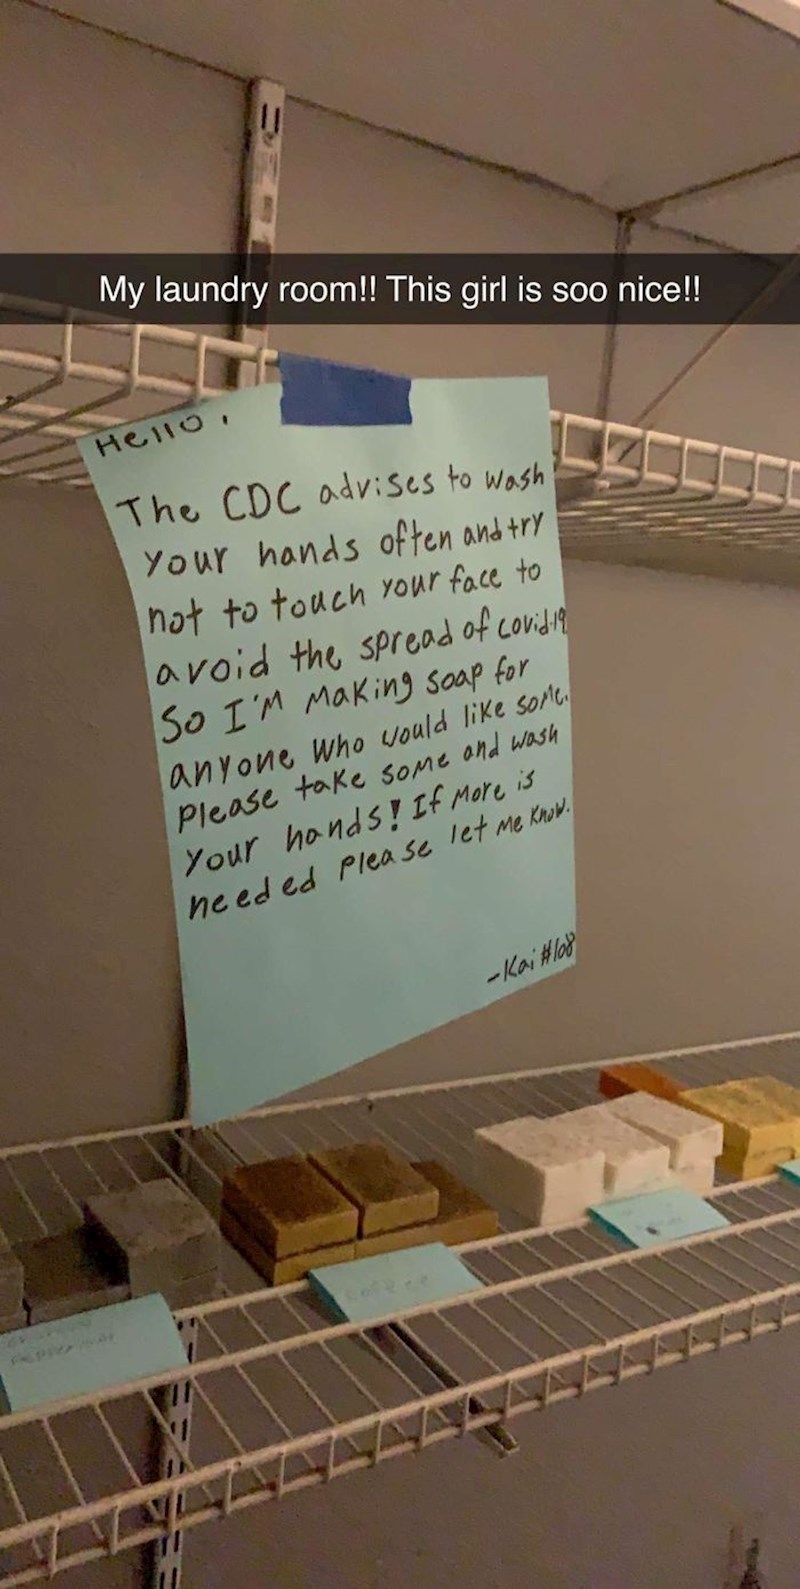 My laundry room!! This girl is soo nice!!
Hello,
The CDC advises to wash
your hands often and try
not to touch your face to
avoid the spread of covid-19
So I'm making soap for
anyone who would like some.
Please take some and wash
your hands! If more is
needed please let me know.
-Kai #108